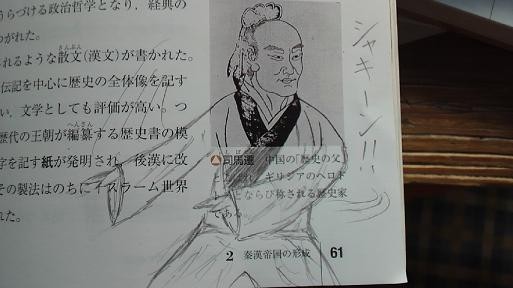 うらづける政治哲学となり，経典の
われた。
れるような散文(漢文)が書かれた。
さんぶん
伝記を中心に歴史の全体像を記す
い，文学としても評価が高い。つ
歴代の王朝が編纂する歴史書の模
へんさん
字を記す紙が発明され，後漢に改
その製法はのちにイスラーム世界
れた。
司馬遷 中国の「歴史の父」
ギリシアのヘロド
とならび称される歴史家
である。
2 秦漢帝国の形成 61
シャキーン!!